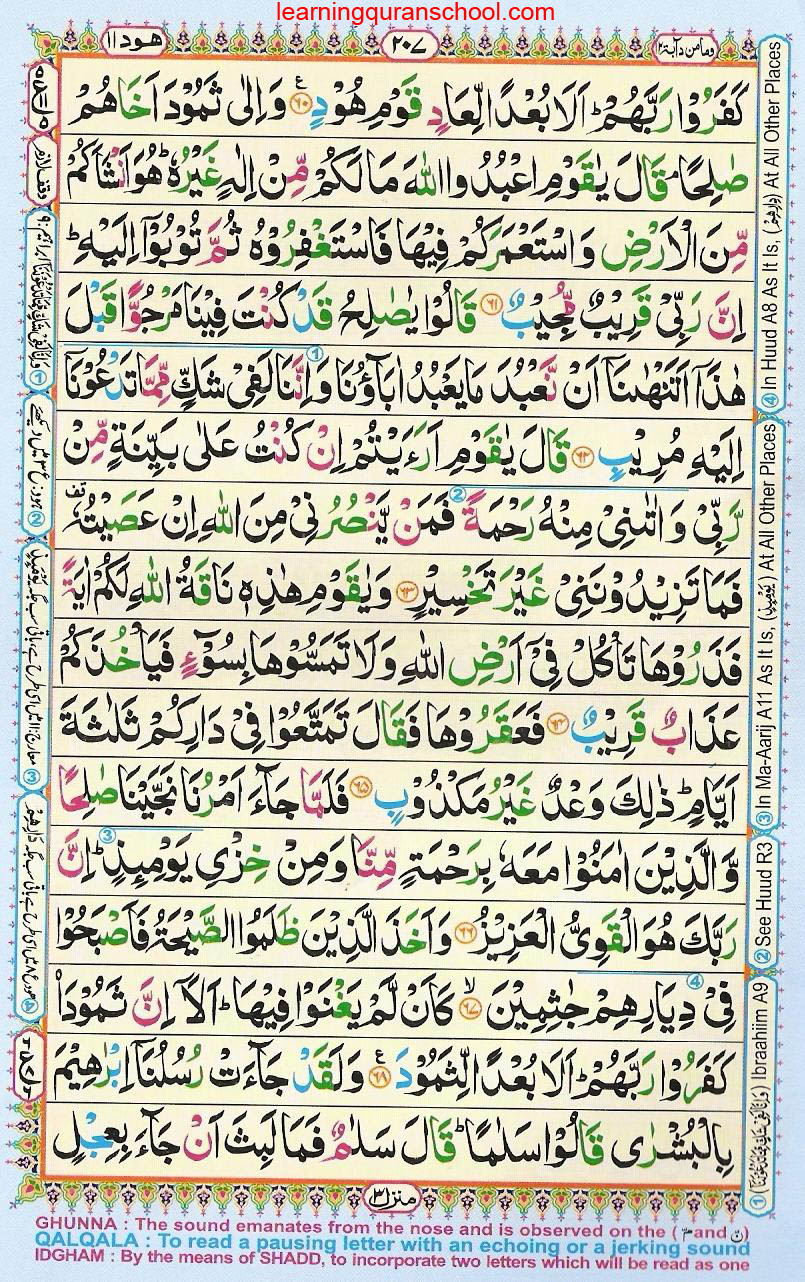 learningquranschool.com
وما من دآبة ۱۲
۲۰۷
هود ۱۱
كَفَرُوْا رَبَّهُمْ ؕ اَلَا بُعْدًا لِّعَادٍ قَوْمِ هُوْدٍ ﴿۶۰﴾ وَاِلٰى ثَمُوْدَ اَخَاهُمْ
صٰلِحًا ۘ قَالَ يٰقَوْمِ اعْبُدُوا اللّٰهَ مَا لَكُمْ مِّنْ اِلٰهٍ غَيْرُهٗ ؕ هُوَ اَنْشَاَكُمْ
مِّنَ الْاَرْضِ وَاسْتَعْمَرَكُمْ فِيْهَا فَاسْتَغْفِرُوْهُ ثُمَّ تُوْبُوْٓا اِلَيْهِ ؕ
اِنَّ رَبِّيْ قَرِيْبٌ مُّجِيْبٌ ﴿۶۱﴾ قَالُوْا يٰصٰلِحُ قَدْ كُنْتَ فِيْنَا مَرْجُوًّا قَبْلَ
هٰذَآ اَتَنْهٰىنَآ اَنْ نَّعْبُدَ مَا يَعْبُدُ اٰبَآؤُنَا وَاِنَّنَا لَفِيْ شَكٍّ مِّمَّا تَدْعُوْنَآ
اِلَيْهِ مُرِيْبٍ ﴿۶۲﴾ قَالَ يٰقَوْمِ اَرَءَيْتُمْ اِنْ كُنْتُ عَلٰى بَيِّنَةٍ مِّنْ
رَّبِّيْ وَاٰتٰىنِيْ مِنْهُ رَحْمَةً فَمَنْ يَّنْصُرُنِيْ مِنَ اللّٰهِ اِنْ عَصَيْتُهٗ ۫
فَمَا تَزِيْدُوْنَنِيْ غَيْرَ تَخْسِيْرٍ ﴿۶۳﴾ وَيٰقَوْمِ هٰذِهٖ نَاقَةُ اللّٰهِ لَكُمْ اٰيَةً
فَذَرُوْهَا تَاْكُلْ فِيْٓ اَرْضِ اللّٰهِ وَلَا تَمَسُّوْهَا بِسُوْٓءٍ فَيَاْخُذَكُمْ
عَذَابٌ قَرِيْبٌ ﴿۶۴﴾ فَعَقَرُوْهَا فَقَالَ تَمَتَّعُوْا فِيْ دَارِكُمْ ثَلٰثَةَ
اَيَّامٍ ؕ ذٰلِكَ وَعْدٌ غَيْرُ مَكْذُوْبٍ ﴿۶۵﴾ فَلَمَّا جَآءَ اَمْرُنَا نَجَّيْنَا صٰلِحًا
وَّالَّذِيْنَ اٰمَنُوْا مَعَهٗ بِرَحْمَةٍ مِّنَّا وَمِنْ خِزْيِ يَوْمِئِذٍ ؕ اِنَّ
رَبَّكَ هُوَ الْقَوِيُّ الْعَزِيْزُ ﴿۶۶﴾ وَاَخَذَ الَّذِيْنَ ظَلَمُوا الصَّيْحَةُ فَاَصْبَحُوْا
فِيْ دِيَارِهِمْ جٰثِمِيْنَ ﴿۶۷﴾ ۙ كَاَنْ لَّمْ يَغْنَوْا فِيْهَا ؕ اَلَآ اِنَّ ثَمُوْدَا۟
كَفَرُوْا رَبَّهُمْ ؕ اَلَا بُعْدًا لِّثَمُوْدَ ﴿۶۸﴾ وَلَقَدْ جَآءَتْ رُسُلُنَآ اِبْرٰهِيْمَ
بِالْبُشْرٰى قَالُوْا سَلٰمًا ؕ قَالَ سَلٰمٌ فَمَا لَبِثَ اَنْ جَآءَ بِعِجْلٍ
④ In Huud A8 As It Is, At All Other Places
③ In Ma-Aarij A11 As It Is, (يَوْمِئِذٍ) At All Other Places
② See Huud R3
① Ibraahiim A9
منزل ۳
GHUNNA : The sound emanates from the nose and is observed on the ( مّ and نّ )
QALQALA : To read a pausing letter with an echoing or a jerking sound
IDGHAM : By the means of SHADD, to incorporate two letters which will be read as one